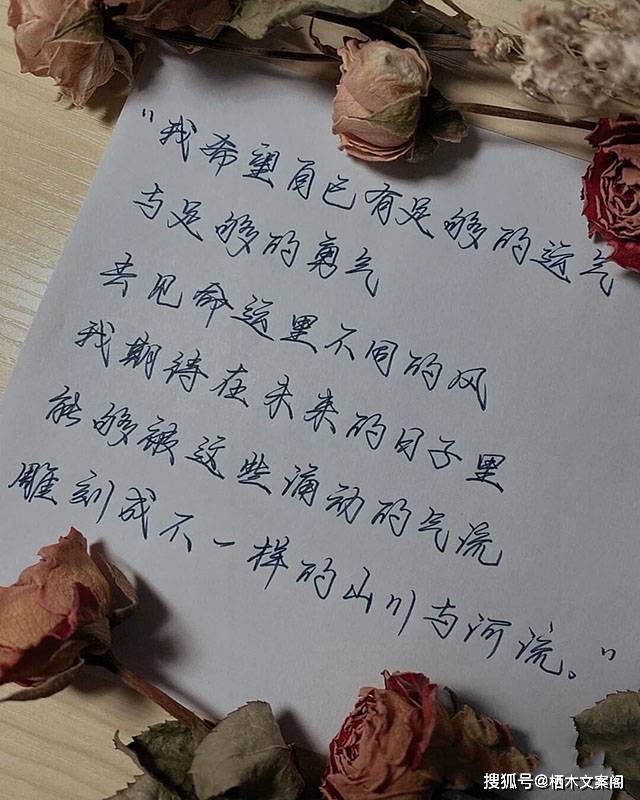 "我希望自己有足够的运气
与足够的勇气
去见命运里不同的风
我期待在未来的日子里
能够被这些涌动的气流
雕刻成不一样的山川与河流。"
搜狐号@栖木文案阁